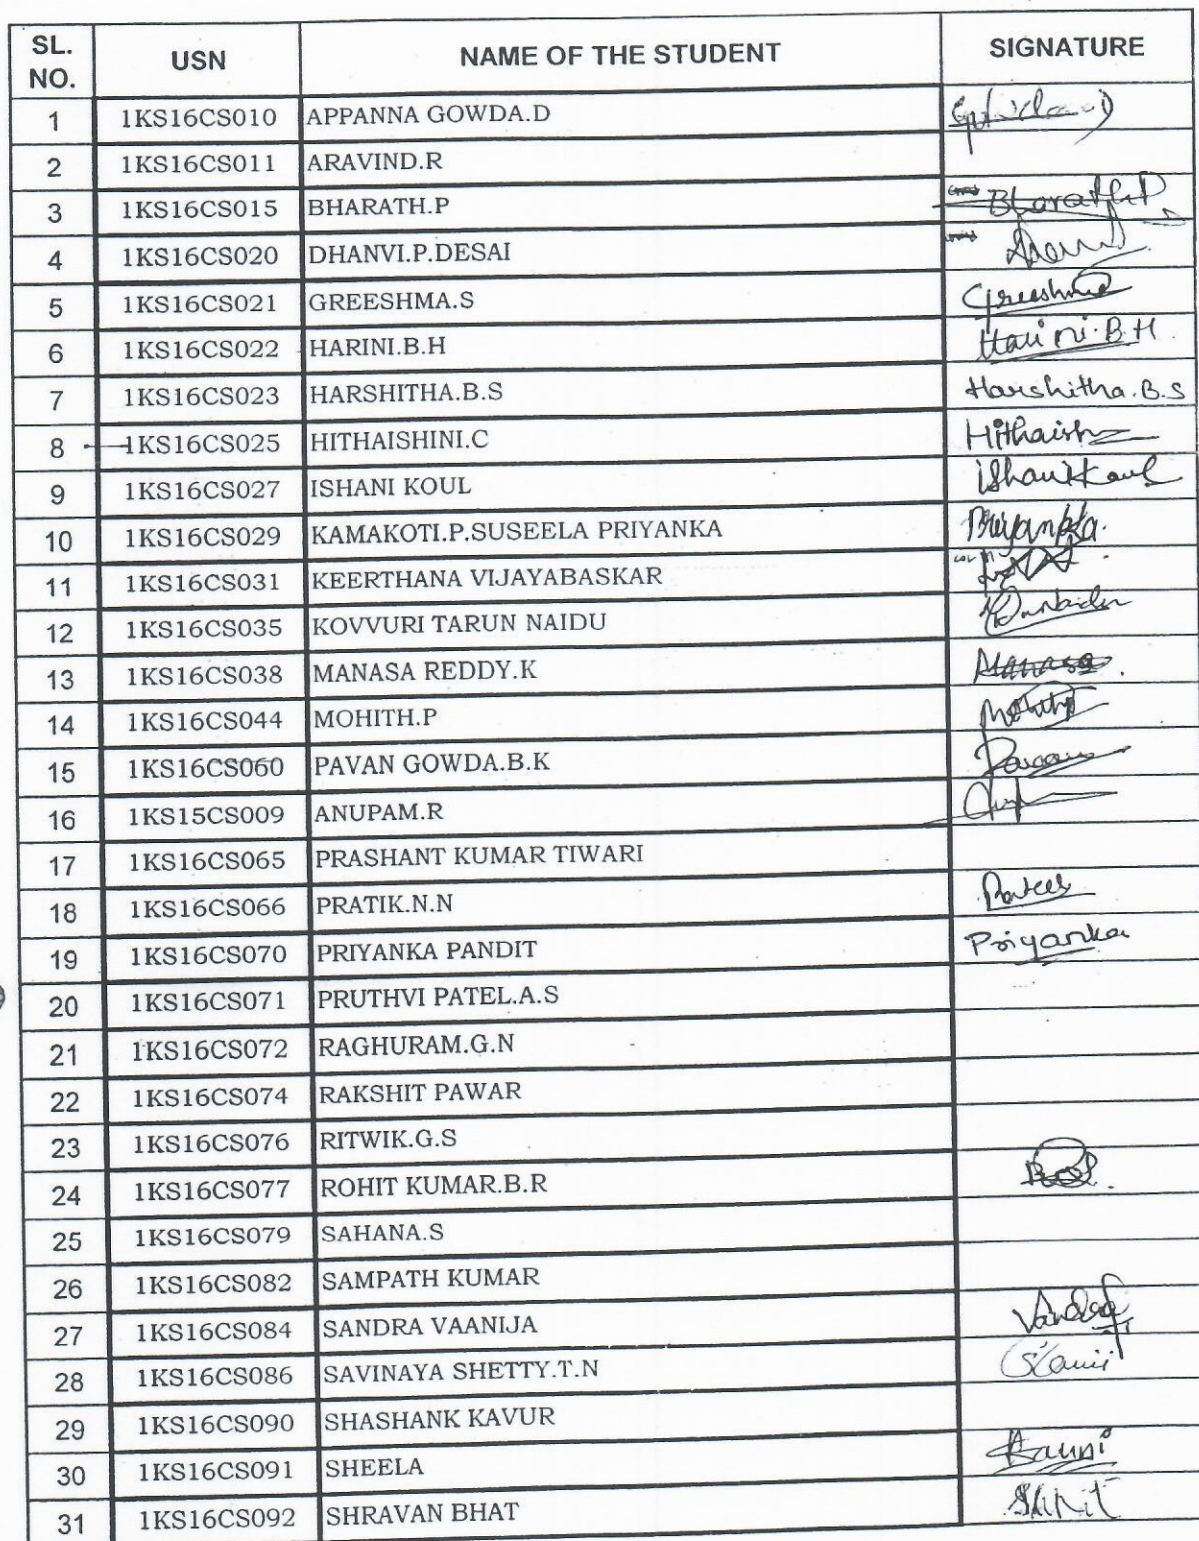 SL. NO. USN NAME OF THE STUDENT SIGNATURE
1 1KS16CS010 APPANNA GOWDA.D
2 1KS16CS011 ARAVIND.R
3 1KS16CS015 BHARATH.P Bharath.P
4 1KS16CS020 DHANVI.P.DESAI
5 1KS16CS021 GREESHMA.S Greeshma
6 1KS16CS022 HARINI.B.H Harini.B.H
7 1KS16CS023 HARSHITHA.B.S Harshitha.B.S
8 1KS16CS025 HITHAISHINI.C
9 1KS16CS027 ISHANI KOUL Ishani Koul
10 1KS16CS029 KAMAKOTI.P.SUSEELA PRIYANKA Priyanka.
11 1KS16CS031 KEERTHANA VIJAYABASKAR
12 1KS16CS035 KOVVURI TARUN NAIDU
13 1KS16CS038 MANASA REDDY.K Manasa
14 1KS16CS044 MOHITH.P Mohith
15 1KS16CS060 PAVAN GOWDA.B.K
16 1KS15CS009 ANUPAM.R
17 1KS16CS065 PRASHANT KUMAR TIWARI
18 1KS16CS066 PRATIK.N.N
19 1KS16CS070 PRIYANKA PANDIT Priyanka
20 1KS16CS071 PRUTHVI PATEL.A.S
21 1KS16CS072 RAGHURAM.G.N
22 1KS16CS074 RAKSHIT PAWAR
23 1KS16CS076 RITWIK.G.S
24 1KS16CS077 ROHIT KUMAR.B.R
25 1KS16CS079 SAHANA.S
26 1KS16CS082 SAMPATH KUMAR
27 1KS16CS084 SANDRA VAANIJA
28 1KS16CS086 SAVINAYA SHETTY.T.N
29 1KS16CS090 SHASHANK KAVUR
30 1KS16CS091 SHEELA
31 1KS16CS092 SHRAVAN BHAT